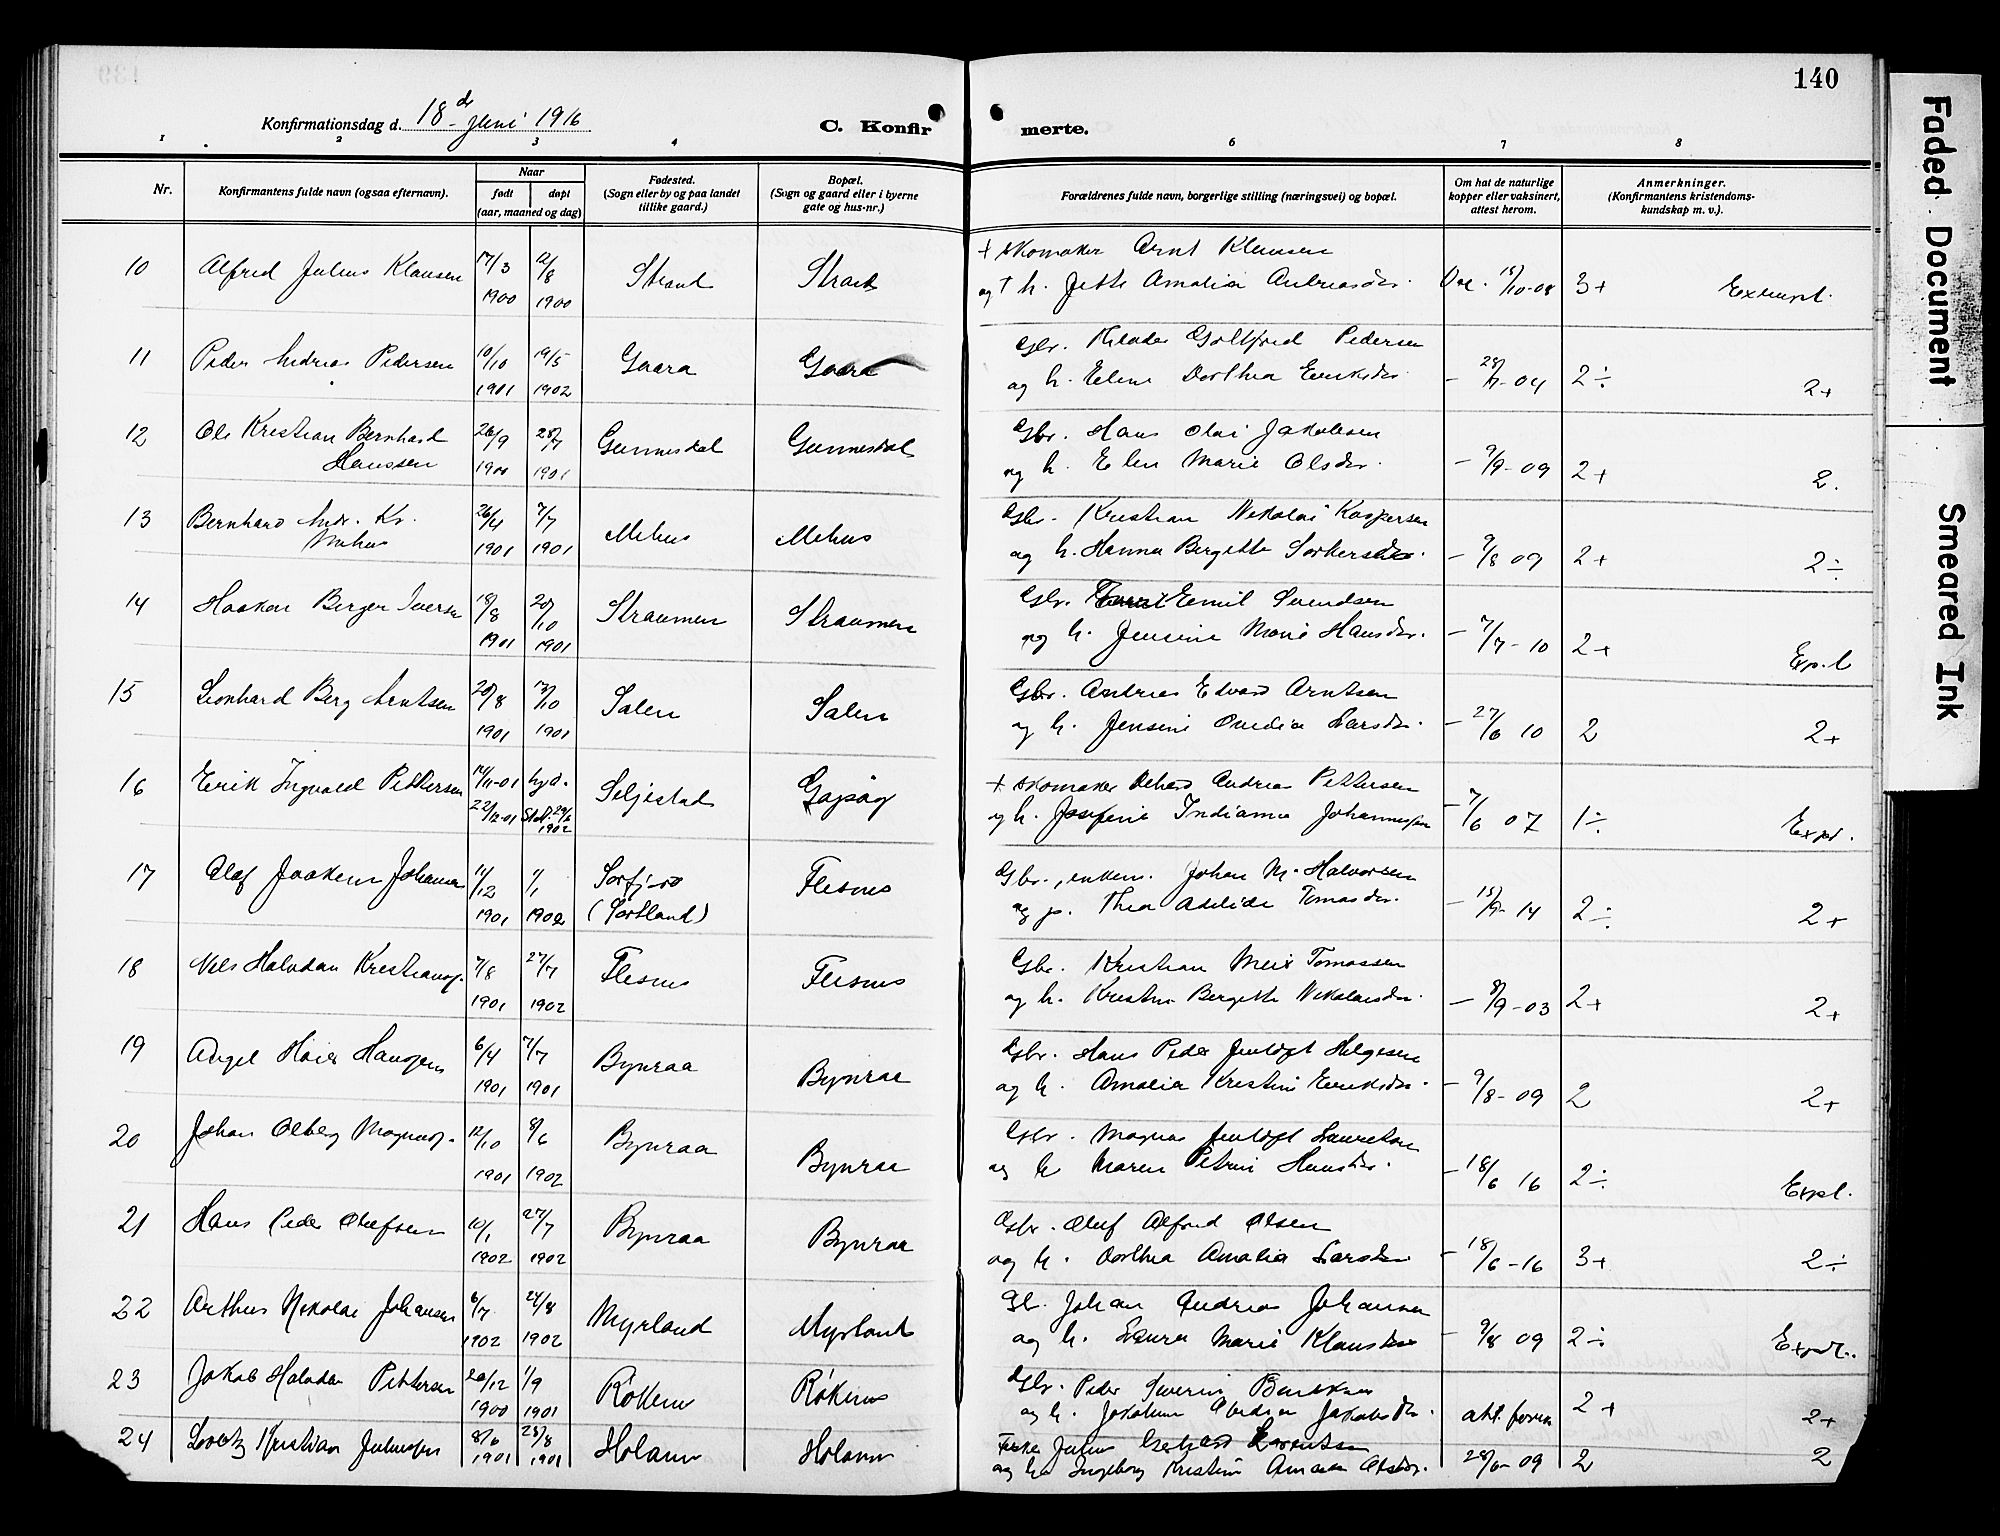 140
Faded Document
Smeared Ink
Konfirmationsdag d. 18de Juni 1916
C. Konfirmerte.
1 2 3 4 6 7 8
Nr.
Konfirmantens fulde navn (ogsaa efternavn).
Naar
født døpt
(aar, maaned og dag)
Fødested.
(Sogn eller by og paa landet
tillike gaard.)
Bopæl.
(Sogn og gaard eller i byerne
gate og hus-nr.)
Forældrenes fulde navn, borgerlige stilling (næringsvei) og bopæl.
Om hat de naturlige
kopper eller vaksinert,
attest herom.
Anmerkninger.
(Konfirmantens kristendoms-
kundskap m. v.).
10 Alfred Julius Klausen 17/3 1900 12/8 1900 Strand Strand
+ skomaker Arnt Klausen
og + h. Jette Amalia Andreasdtr. Vac. 15/10-08 3+ Exempl.
11 Peder Andreas Pedersen 10/10 1901 19/5 1902 Gaara Gaara
Gbr. Gottfred Pedersen
og h. Eline Dorthea Eriksdtr. – 28/7-04 2÷ 2+
12 Ole Kristian Bernhard
Hanssen 26/9 1900 28/7 1901 Gunnesdal Gunnesdal
Gbr. Hans Olai Jakobsen
og h. Elen Marie Olsdtr. – 9/9-09 2+ 2.
13 Bernhard Andr. Kr.
26/4 1901 7/7 1901 Mehus Mehus
Gbr. Kristian Nikolai Kaspersen
og h. Hanna Bergitte – 9/8 09 2+ 2÷
14 Haakon Berger Iversen 19/8 1901 20/10 1901 Straumen Straumen
Gbr. Emil Svendsen
og h. Jensine Marie Hansdtr. – 7/7-10 2+ Exp.l
15 Leonhard Berg Arntsen 20/8 1901 13/10 1901 Salen Salen
Gbr. Andreas Edvard Arntsen
og h. Jensine Ovedia Larsdtr. – 27/6 10 2 2+
16 Erik Ingvald Pettersen 14/11-01 22/12-01 hjd. Stdf. 29/6 1902 Seljestad
+ skomaker Andreas Pettersen
og h. Josefine Indianna – 7/6 07 1÷ Expl.
17 Olaf Joakim Johansen 11/12 1901 1/1 1902 Sørfjord
(Sortland) Flesnes
Gbr., enkem. Johan M. Halvorsen
og p. Thea Adelide Tomasdtr. – 15/9-14 2÷ 2+
18 Nils Halvdan Kristians. 7/8 1901 27/7 1902 Flesnes Flesnes
Gbr. Kristian Meier Tomassen
og h. Kristine Bergitte Nikolaisdtr. – 8/9-03 2+ 2+
19 Angel Høier Hanssen 6/4 1901 7/7 1901 Bynraa Bynraa
Gbr. Hans Peder Jentoft Helgesen
og h. Amalia Kristine Eriksdtr. – 9/8-09 2 2+
20 Johan Olberg Magnus. 12/10 1901 8/6 1902 Bynraa Bynraa
Gbr. Magnus Jentoft
og h. Maren Petrine Hansdtr. – 18/6 16 2÷ Expl.
21 Hans Peder Olufsen 10/1 1902 27/7 1902 Bynraa Bynraa
Gbr. Oluf Alfred Olsen
og h. Dorthea Amalia Larsdtr – 18/6-16 3+ 2÷
22 Arthur Nikolai Johansen 6/7 1902 24/8 1902 Myrland Myrland
Gb. Johan Andreas Johansen
og h. Laura Marie Klausdtr – 9/8 09 2÷ Expl.
23 Jakob Halvdan Pettersen 20/12 1900 1/9 1901 Røkenes Røkenes
Gbr. Peder Severin
og h. Jakobsdtr. 2+ 2+
24 Kristian 8/6 1901 28/8 1901 Holann Holann
Julius Gerhard Lorentsen
og h. Ingeborg Kristine 28/6-09 2 2